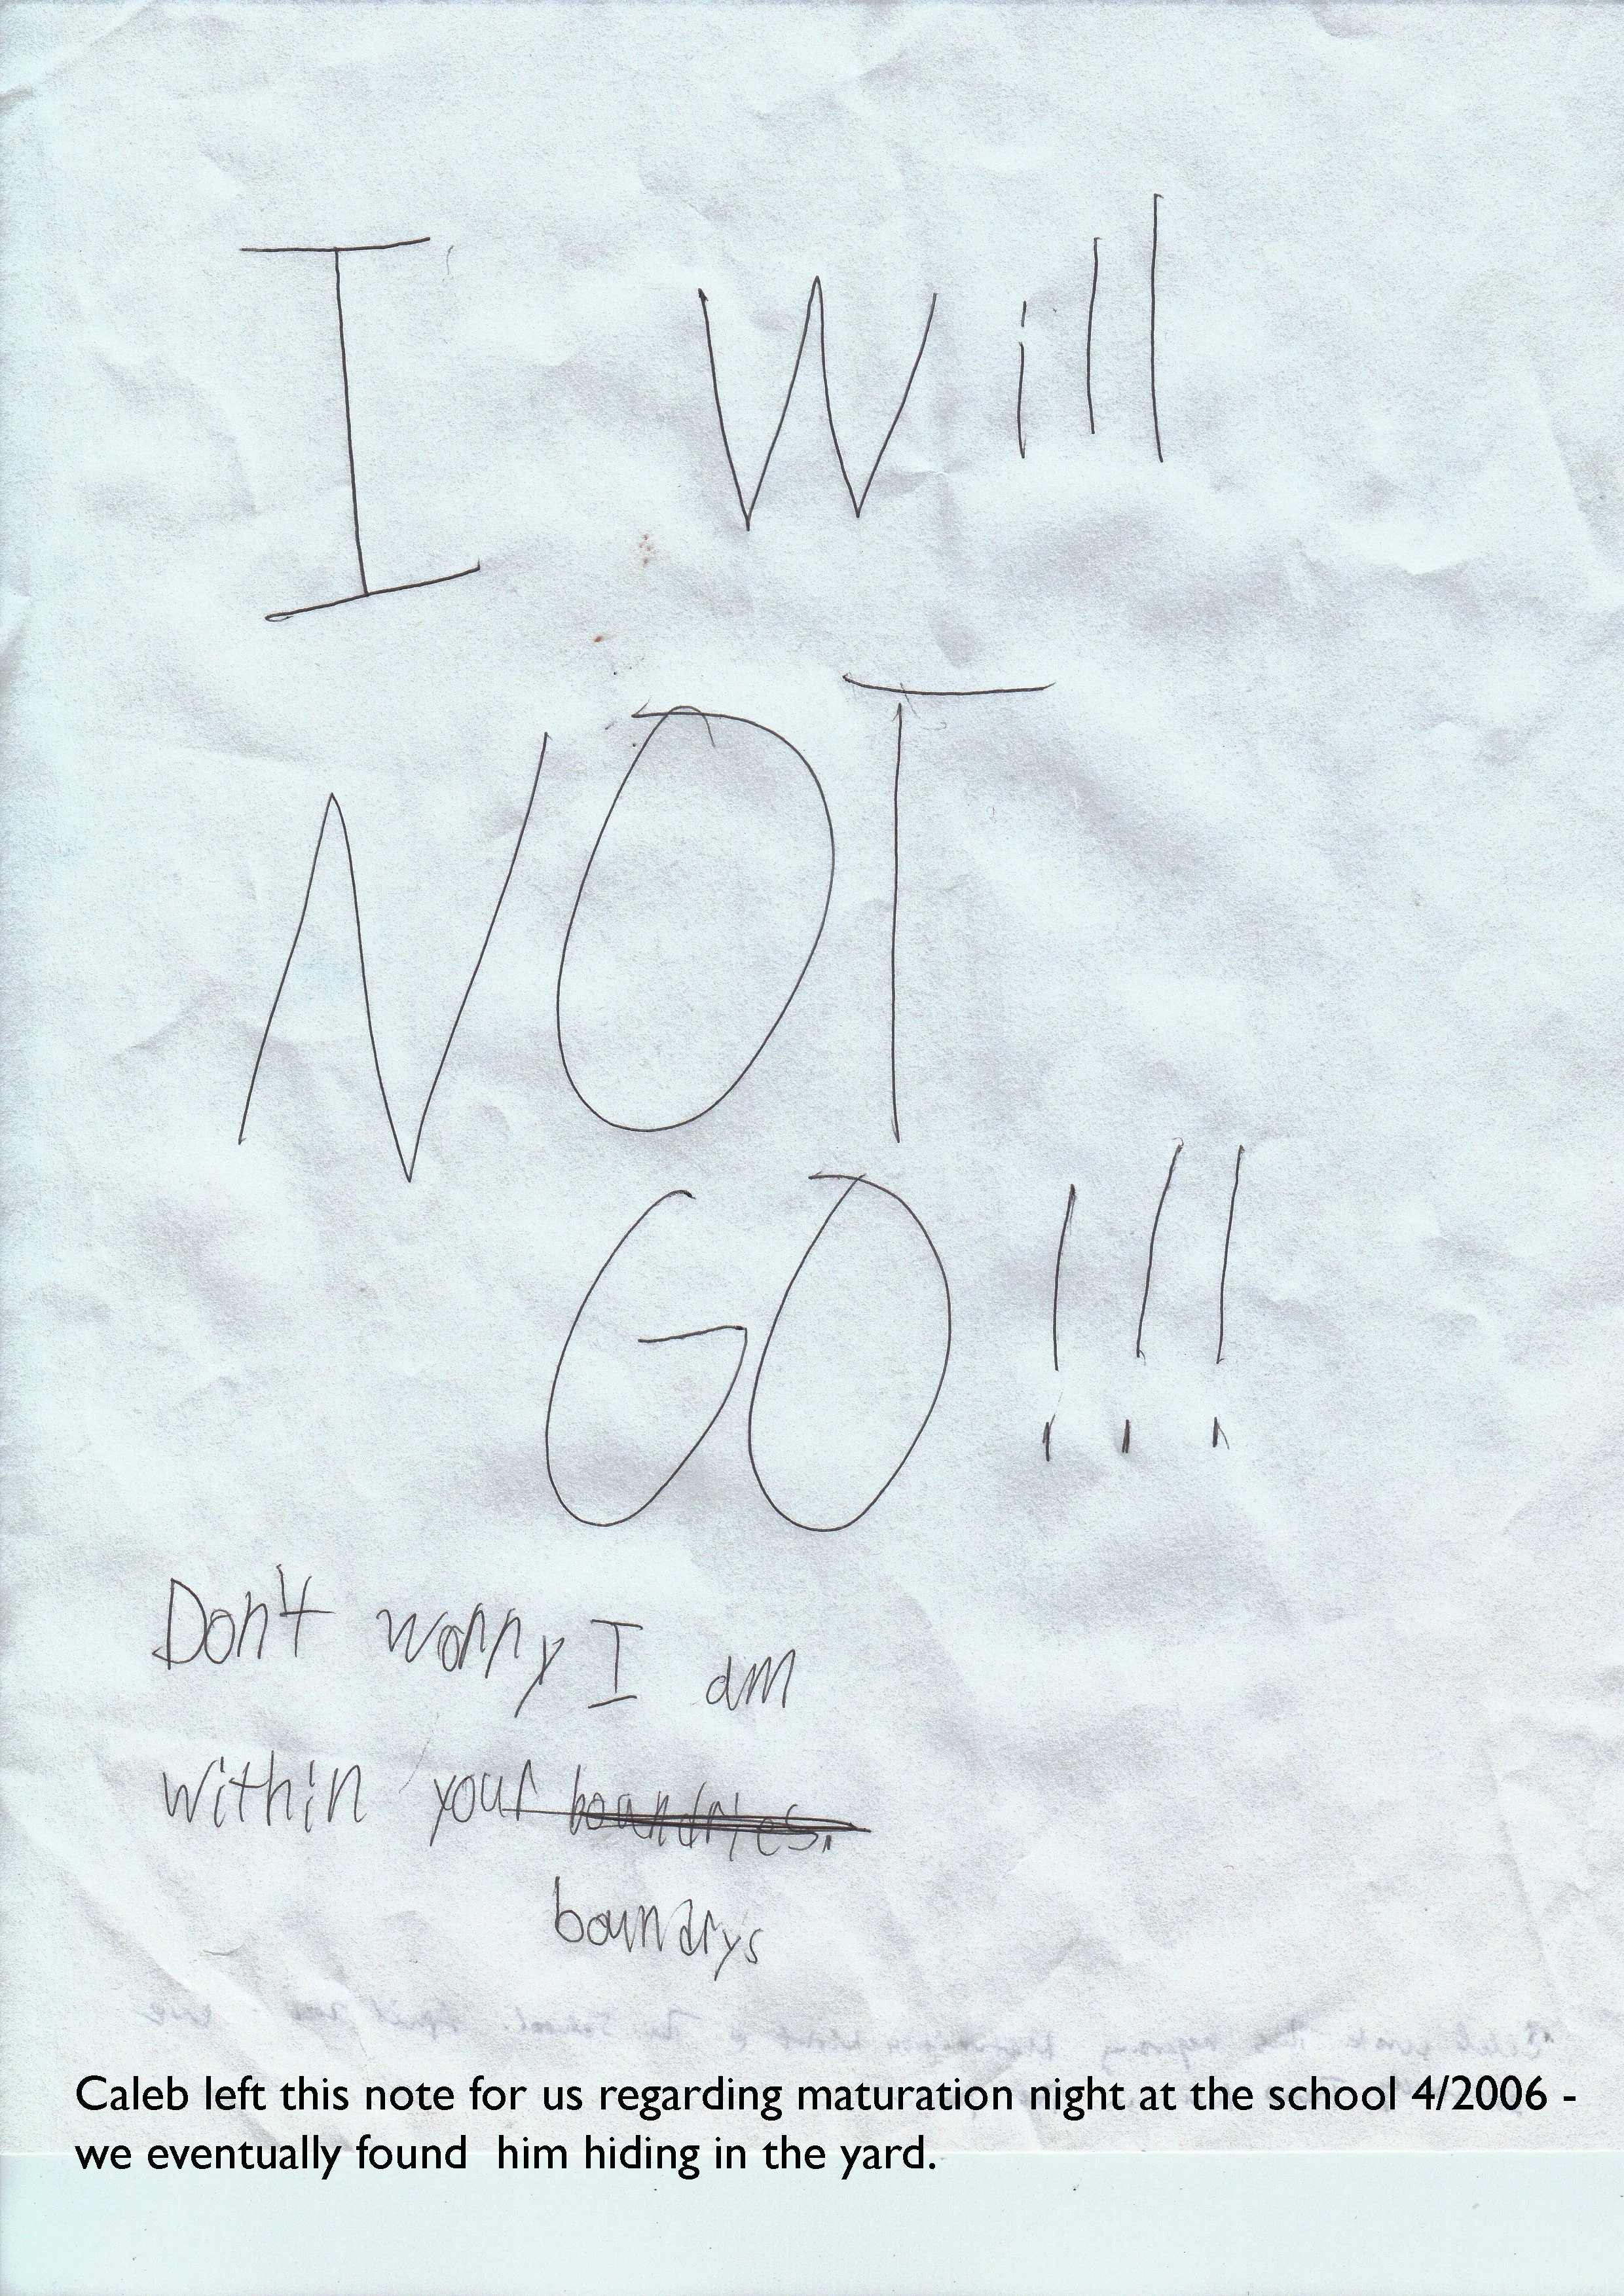 I Will
NOT
GO!!!
Don't worry I am
within your boundries.
boundrys
Caleb left this note for us regarding maturation night at the school 4/2006 -
we eventually found him hiding in the yard.